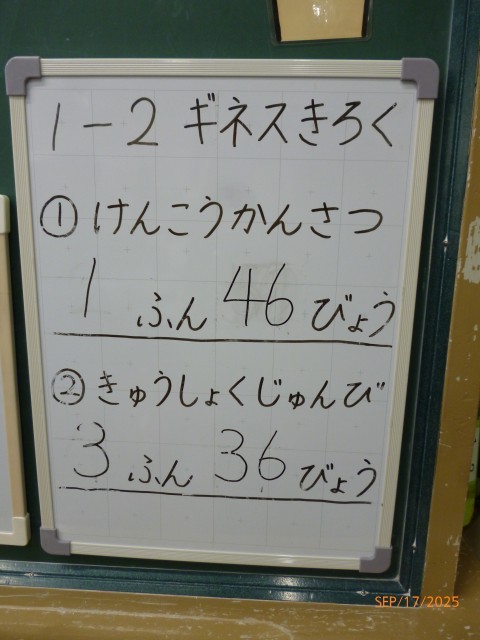 1-2 ギネスきろく
① けんこうかんさつ
1 ふん 46 びょう
② きゅうしょくじゅんび
3 ふん 36 びょう
SEP/17/2025